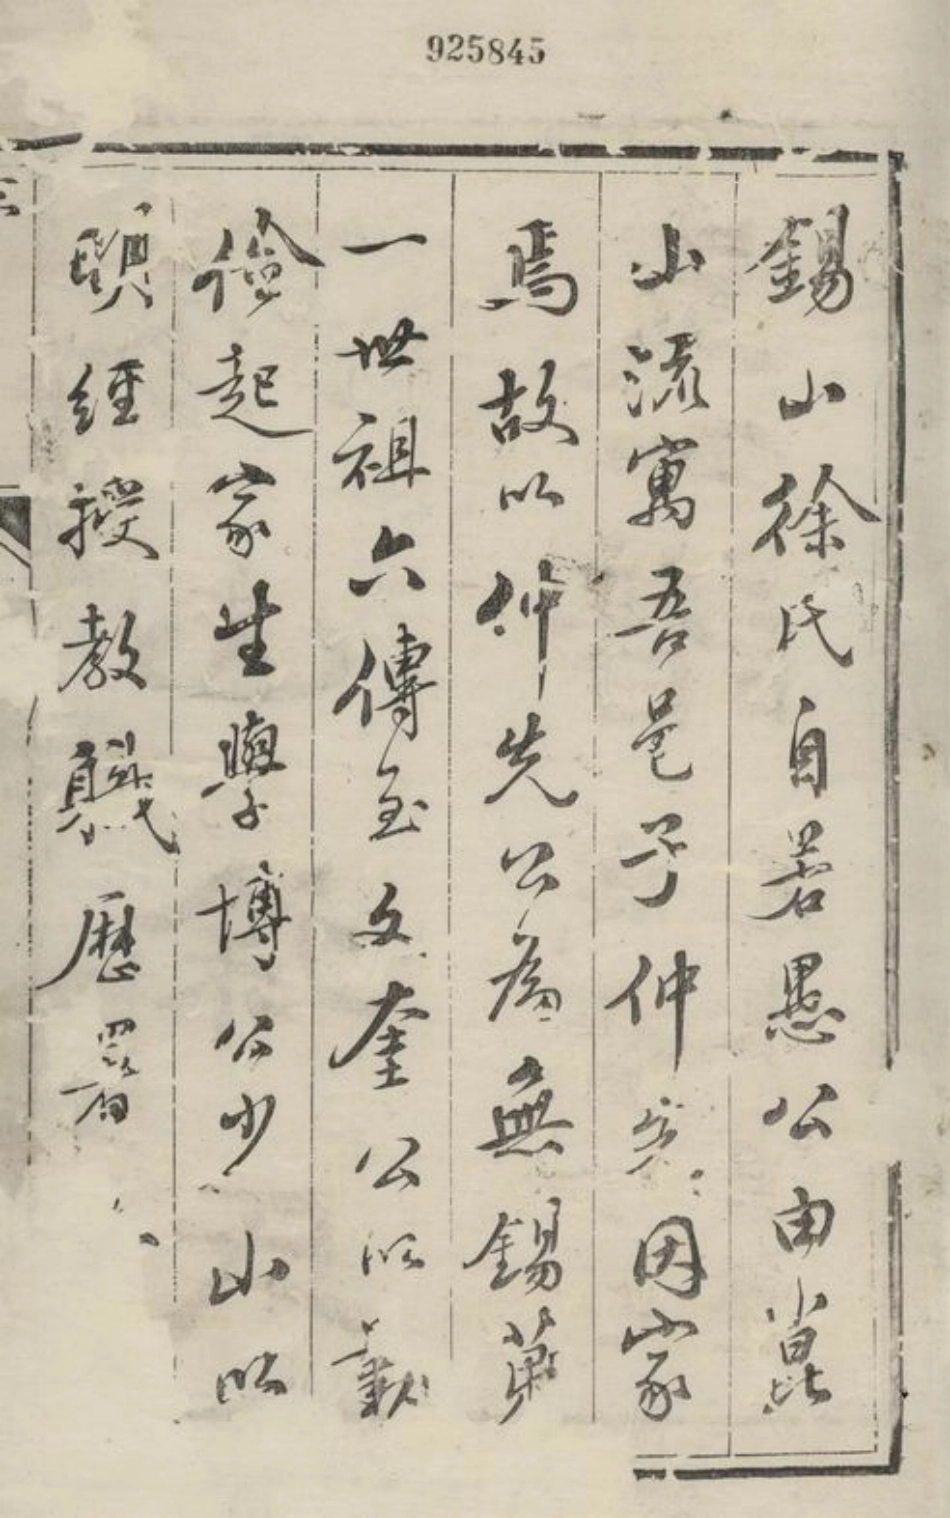 925845
錫山徐氏自若愚公由崑
山流寓吾邑子仲先因家
焉故以仲先公為無錫第
一世祖六傳至文奎公以勤
儉起家生學博公少山以
明經授教職歷署